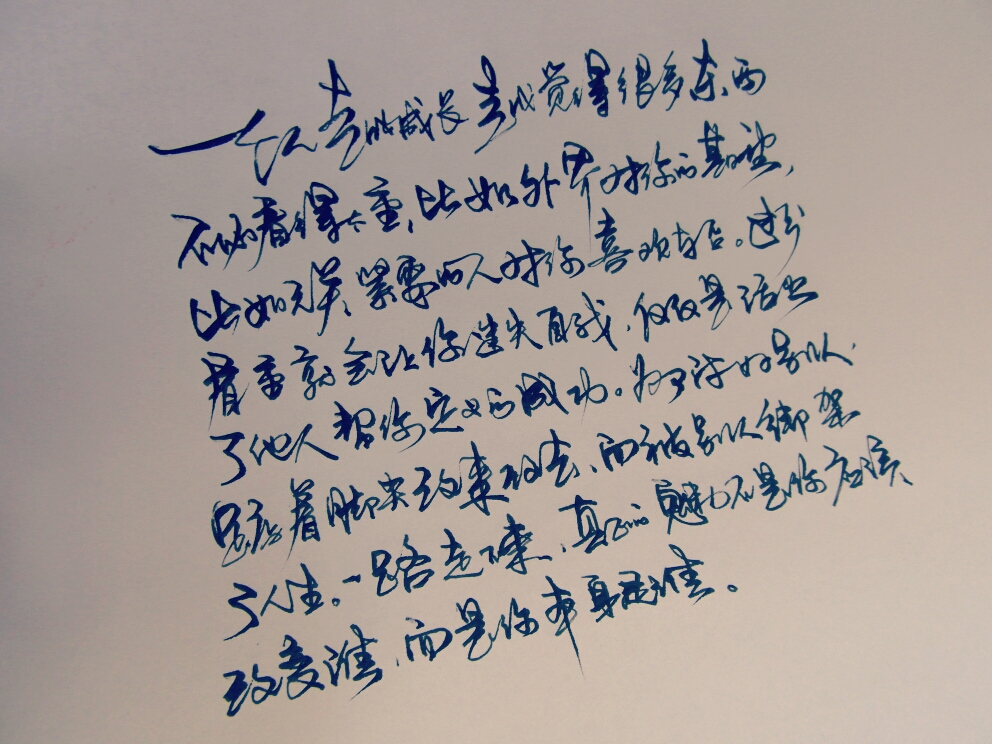 一个人真的成长 去会觉得很多东西
不必看得太重，比如外界对你的期望，
比如无关紧要的人对你喜欢与否。过分
看重就会让你迷失自我，仅仅是活出
了他人帮你定义的成功。为了讨好别人，
踮着脚尖改来改去，而被别人绑架
了人生。一路走来，真正的魅力不是你应该
改变谁，而是你本身是谁。